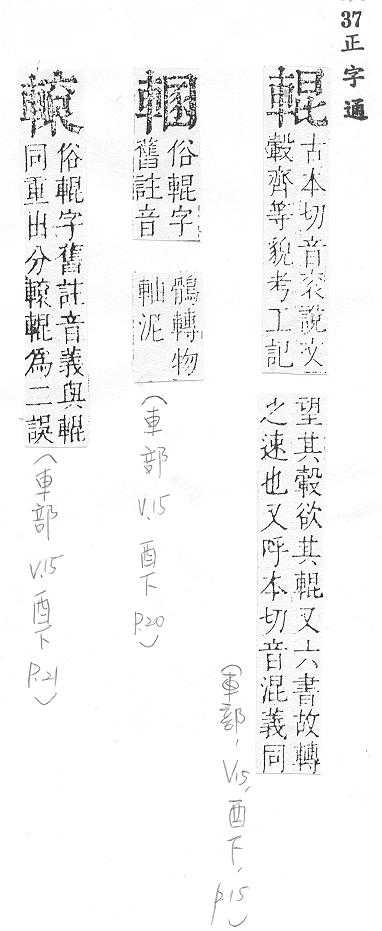 37正字通
輥
古本切音袞說文
轂齊等貌考工記
望其轂欲其輥又六書故轉
之速也又呼本切音混義同
(車部, V.15, 酉下, p.15)
俗輥字
舊註音
鶻轉物
軸泥
(車部 V.15 酉下 p.20)
俗輥字舊註音義與輥
同重出分輥爲二誤
(車部 V.15 酉下 p.21)